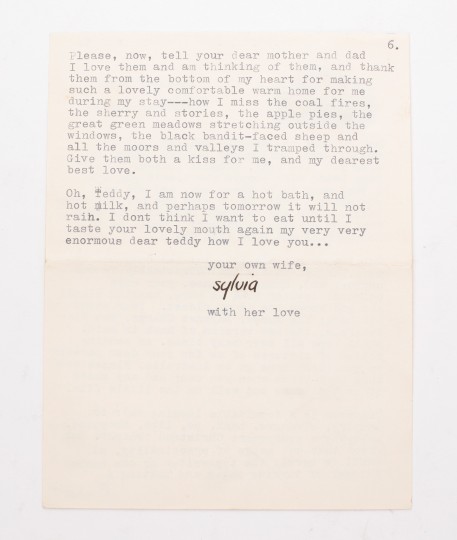 6.
Please, now, tell your dear mother and dad
I love them and am thinking of them, and thank
them from the bottom of my heart for making
such a lovely comfortable warm home for me
during my stay---how I miss the coal fires,
the sherry and stories, the apple pies, the
great green meadows stretching outside the
windows, the black bandit-faced sheep and
all the moors and valleys I tramped through.
Give them both a kiss for me, and my dearest
best love.
Oh, Teddy, I am now for a hot bath, and
hot milk, and perhaps tomorrow it will not
rain. I dont think I want to eat until I
taste your lovely mouth again my very very
enormous dear teddy how I love you...
your own wife,
sylvia
with her love